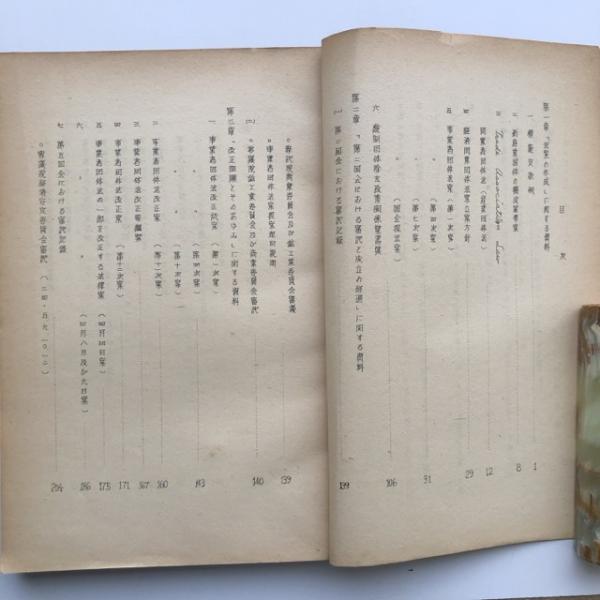 目次
第一章「法案の作成」に関する資料
一 1
二 8
三 Trade Association Law
事業者団体法(産業団体法) 12
四 経済団体法案立案方針 29
五 事業者団体法案(第一次案)
〃 (第四次案)
〃 (第七次案) 91
〃 (国会提出案)
六 統制団体除去政策関係覚書集 106
第二章「第二国会における審議と成立の経過」に関する資料
一 第二国会における審議記録 139
○衆議院商業委員会及び鉱工業委員会審議 139
○事業者団体法案提案理由説明
○参議院鉱工業委員会及び商業委員会審議 140
第三章「改正問題とそのあゆみ」に関する資料
一 事業者団体法改正試案(第一次案) 143
〃 (第十次案)
二 事業者団体法改正案(第十一次案) 160
三 事業者団体法改正要綱案 167
四 事業者団体法改正案(第十二次案) 171
五 事業者団体法の一部を改正する法律案(四月四日案) 175
六 〃 (四月八日及び九日案) 186
七 第五国会における審議記録
○衆議院経済安定委員会審議(二四・五・九、一〇、一二) 204